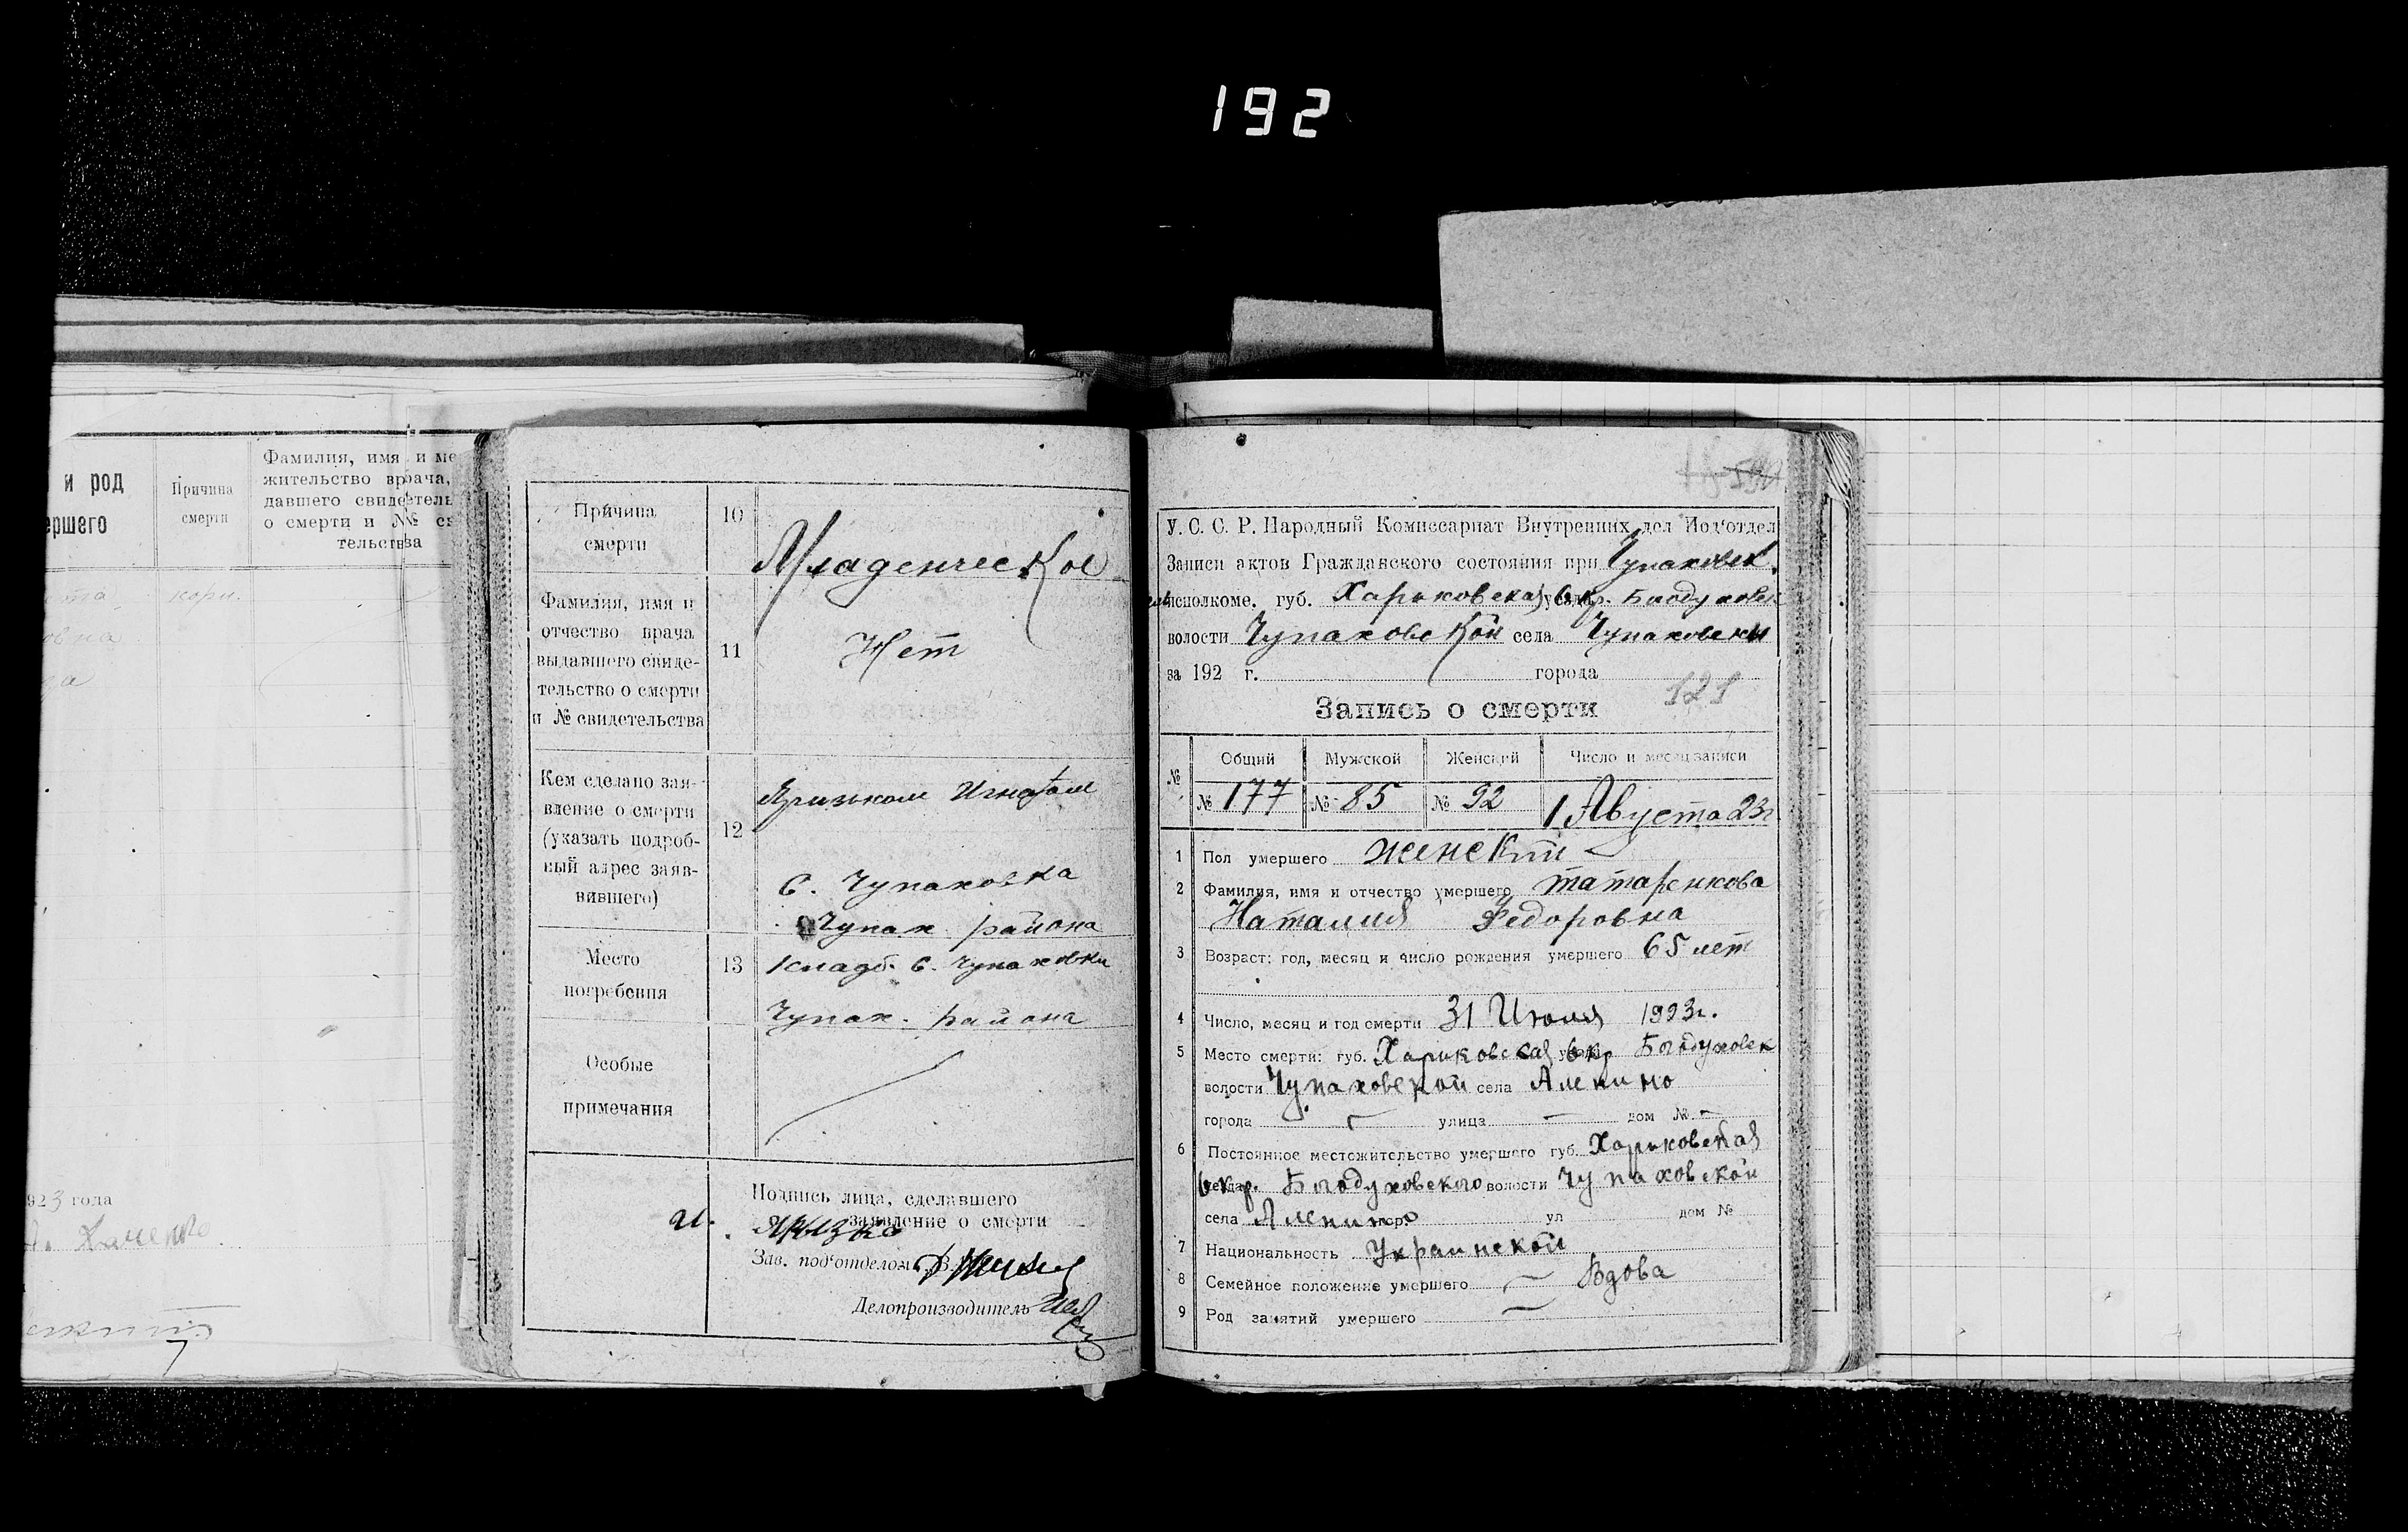 192
и род
ершего
Причина
смерти
Фамилия, имя и ме
жительство врача,
давшего свидетель
о смерти и №№ св
тельства
та
кори.
овна
923 года
Причина
смерти
10
Младенческое
Фамилия, имя и
отчество врача
выдавшего свиде-
тельство о смерти
и № свидетельства
11
Нет
Кем сделано зая-
вление о смерти
(указать подроб-
ный адрес заяв-
вившего)
12
Яризьком Игнатом
С. Чупаховка
Чупах. района
Место
погребения
13
Кладб. С. Чупаховки
Чупах. района
Особые
примечания
Подпись лица, сделавшего
заявление о смерти
И. Яризко
Зав. под'отделом
Делопроизводитель
У. С. С. Р. Народный Комиссариат Внутренних дел Под'отдел
Записи актов Гражданского состояния при Чупаховск.
исполкоме. губ. Харьковская Окр. Богодуховск
волости Чупаховской села Чупаховки
за 192 г. города
121
Запись о смерти
№ Общий Мужской Женский Число и месяц записи
№ 177 № 85 № 92 1 Августа 23г
1 Пол умершего женский
2 Фамилия, имя и отчество умершего Татаренкова
Наталия Федоровна
3 Возраст: год, месяц и число рождения умершего 65 лет
4 Число, месяц и год смерти 31 Июля 1923г.
5 Место смерти: губ. Харьковская Окр Богодуховск
волости Чупаховской села Аленино
города — улица — дом № —
6 Постоянное местожительство умершего губ. Харьковская
Окр. Богодуховского волости Чупаховской
села Аленино гор. ул дом №
7 Национальность Украинской
8 Семейное положение умершего — Вдова
9 Род занятий умершего —